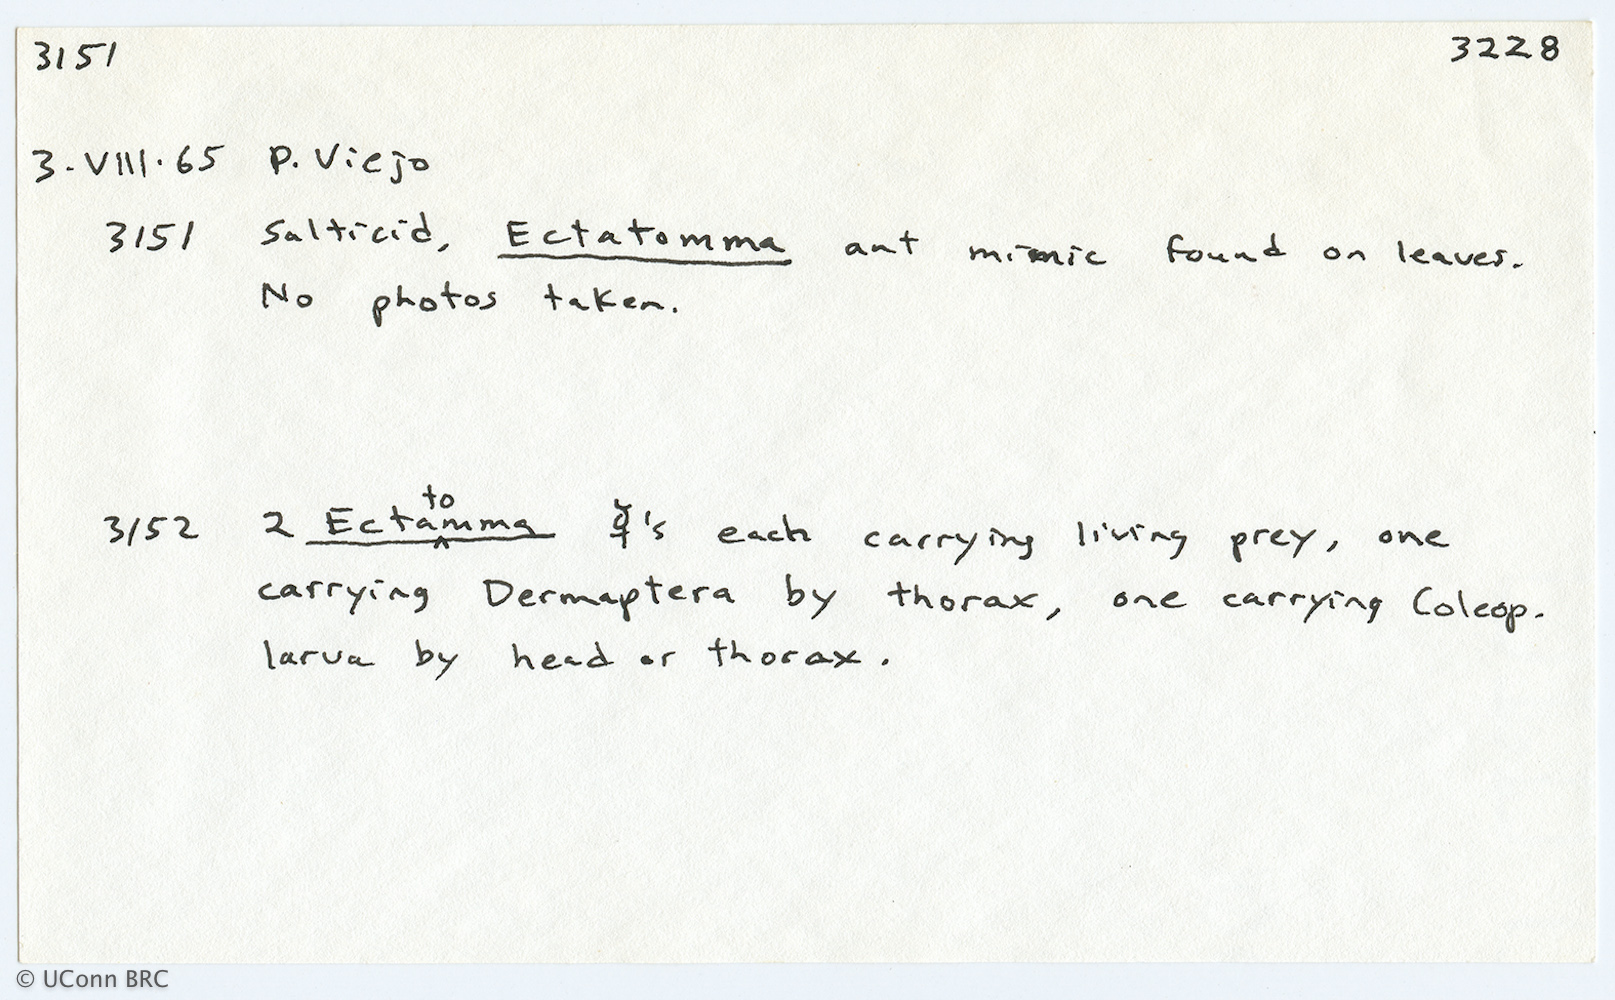 3151 3228
3.VIII.65 P. Viejo
3151 Salticid, Ectatomma ant mimic found on leaves.
No photos taken.
3152 2 Ectatomma ☿'s each carrying living prey, one
carrying Dermaptera by thorax, one carrying Coleop.
larva by head or thorax.
© UConn BRC